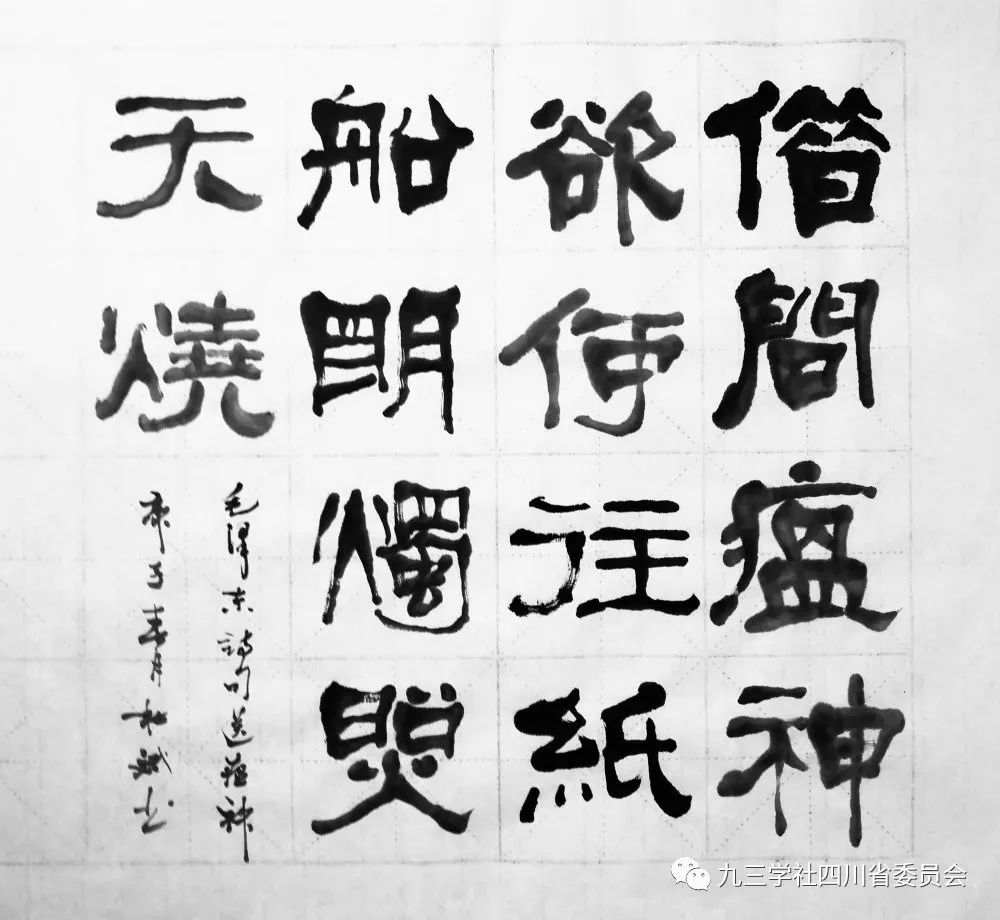 借問瘟神
欲何往紙
船明燭照
天燒
毛澤东詩句送瘟神
庚子春月 斌书
九三学社四川省委员会